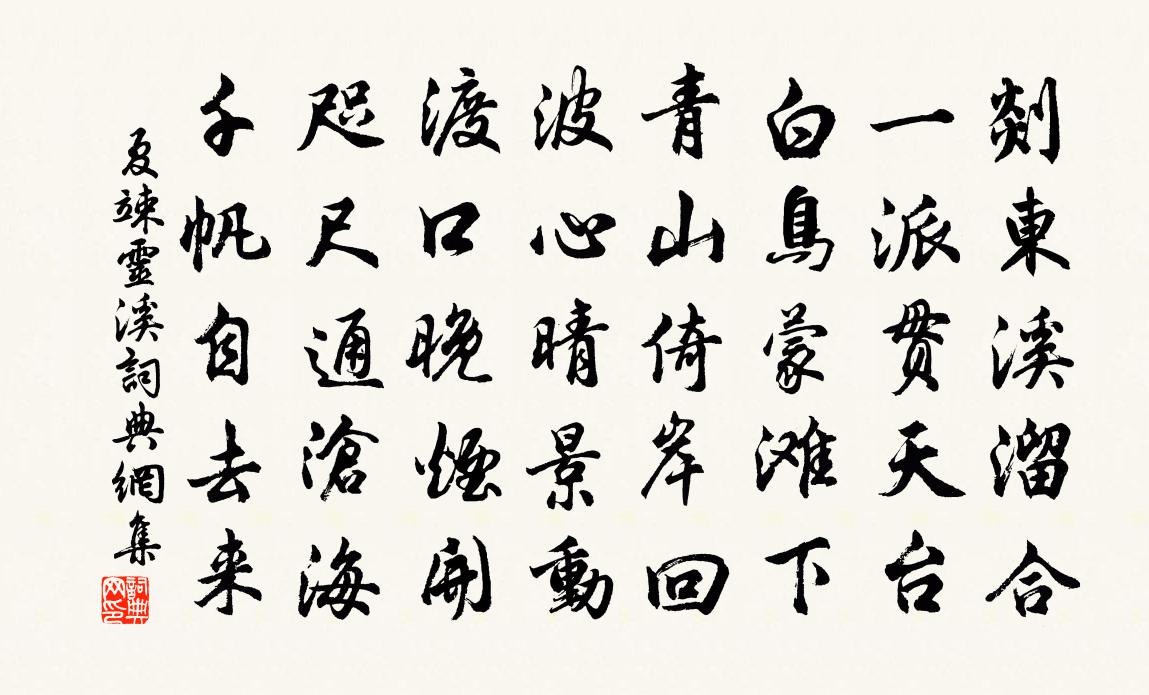 剡東溪溜合
一派贯天台
白鳥蒙滩下
青山倚岸回
波心晴景動
渡口晚煙開
咫尺通滄海
千帆自去来
夏竦靈溪詞典網集
詞典網印